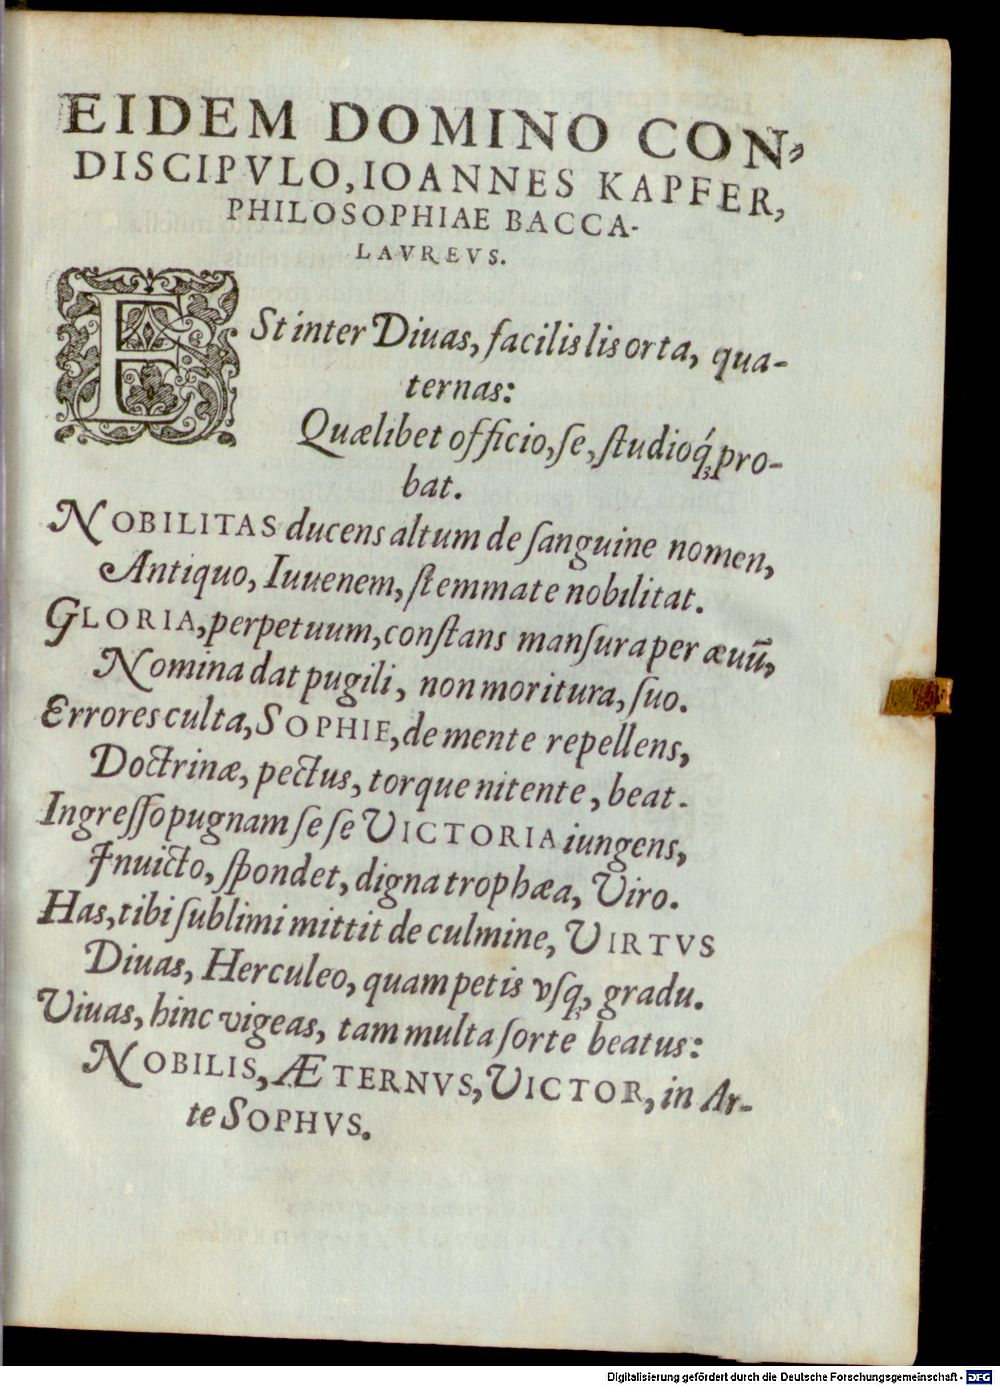 EIDEM DOMINO CON-
DISCIPVLO, IOANNES KAPFER,
PHILOSOPHIAE BACCA-
LAVREVS.
ESt inter Diuas, facilis lis orta, qua-
ternas:
Quælibet officio, se, studioq́ꝫ pro-
bat.
NOBILITAS ducens altum de sanguine nomen,
Antiquo, Iuuenem, stemmate nobilitat.
GLORIA, perpetuum, constans mansura per æuū,
Nomina dat pugili, non moritura, suo.
Errores culta, SOPHIE, de mente repellens,
Doctrinæ, pectus, torque nitente, beat.
Ingresso pugnam se se VICTORIA iungens,
Inuicto, spondet, digna trophæa, Viro.
Has, tibi sublimi mittit de culmine, VIRTVS
Diuas, Herculeo, quam petis vsqꝫ, gradu.
Viuas, hinc vigeas, tam multa sorte beatus:
NOBILIS, ÆTERNVS, VICTOR, in Ar-
te SOPHVS.
Digitalisierung gefördert durch die Deutsche Forschungsgemeinschaft - DFG